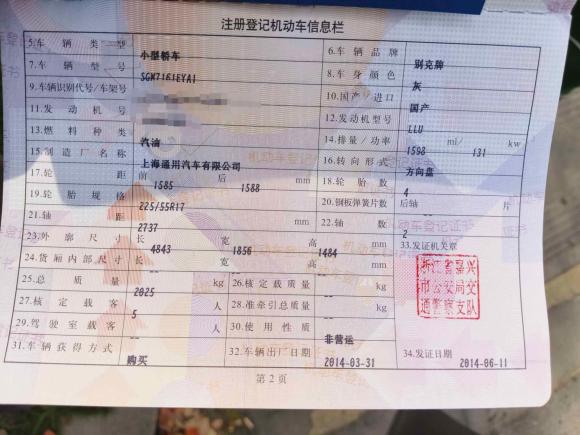 注册登记机动车信息栏
5.车辆类型 小型轿车 6.车辆品牌 别克牌
7.车辆型号 SGM7161EYA1 8.车身颜色 灰
9.车辆识别代号/车架号 10.国产/进口 国产
11.发动机号 12.发动机型号 LLU
13.燃料种类 汽油 14.排量/功率 1598 ml/ 131 kw
15.制造厂名称 上海通用汽车有限公司 16.转向形式 方向盘
17.轮距 前 1585 后 1588 mm 18.轮胎数 4
19.轮胎规格 225/55R17 20.钢板弹簧片数 后轴 -- 片
21.轴距 2737 mm 22.轴数 2
23.外廓尺寸 长 4843 宽 1856 高 1484 mm 33.发证机关章
24.货厢内部尺寸 长 -- 宽 -- 高 -- mm
浙江省嘉兴
市公安局交
通警察支队
25.总质量 2025 kg 26.核定载质量 -- kg
27.核定载客 5 人 28.准牵引总质量 -- kg
29.驾驶室载客 -- 人 30.使用性质 非营运
31.车辆获得方式 购买 32.车辆出厂日期 2014-03-31 34.发证日期 2014-06-11
第2页